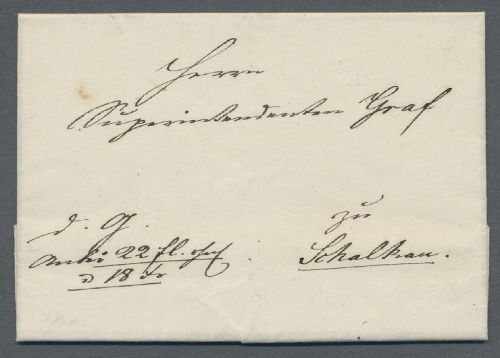 Herrn
Superintendenten Graf
d. G.
zu
22 fl.
18 Kr
Schalkau.